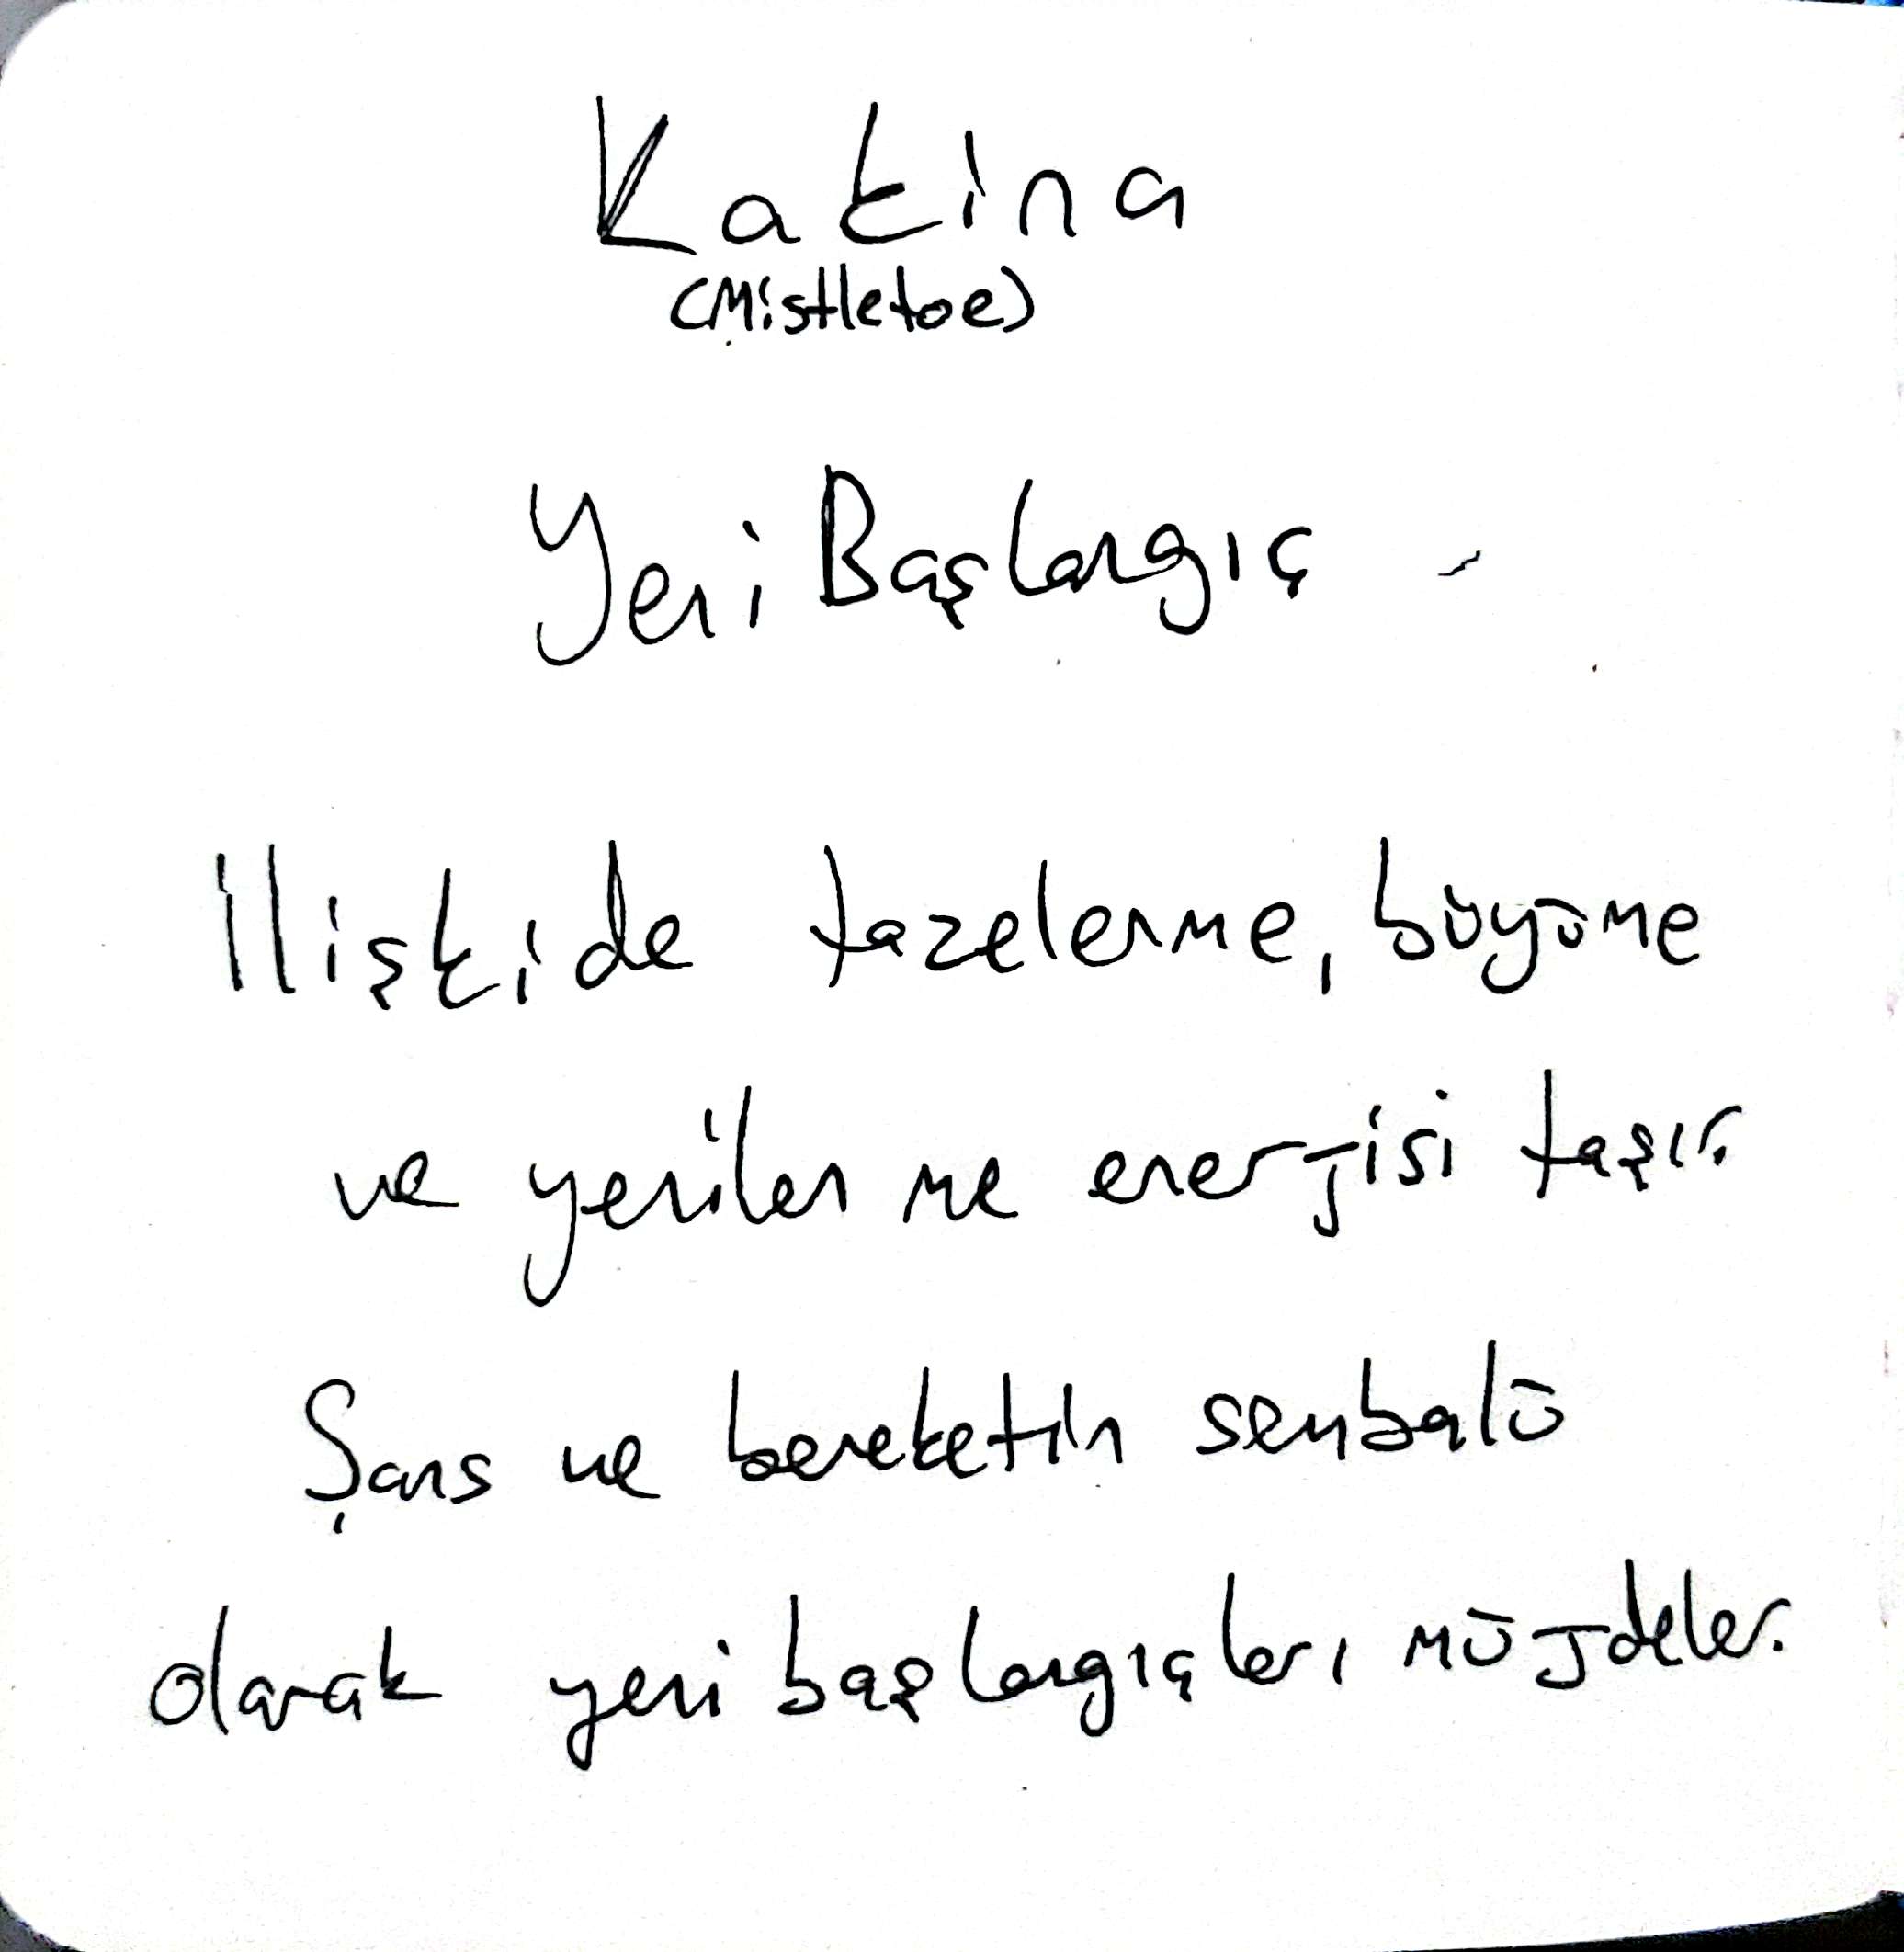 Katina
(Mistletoe)
Yeni Başlangıç
İlişkide tazelenme, büyüme
ve yenilenme enerjisi taşır.
Şans ve bereketin sembolü
olarak yeni başlangıçları müjdeler.